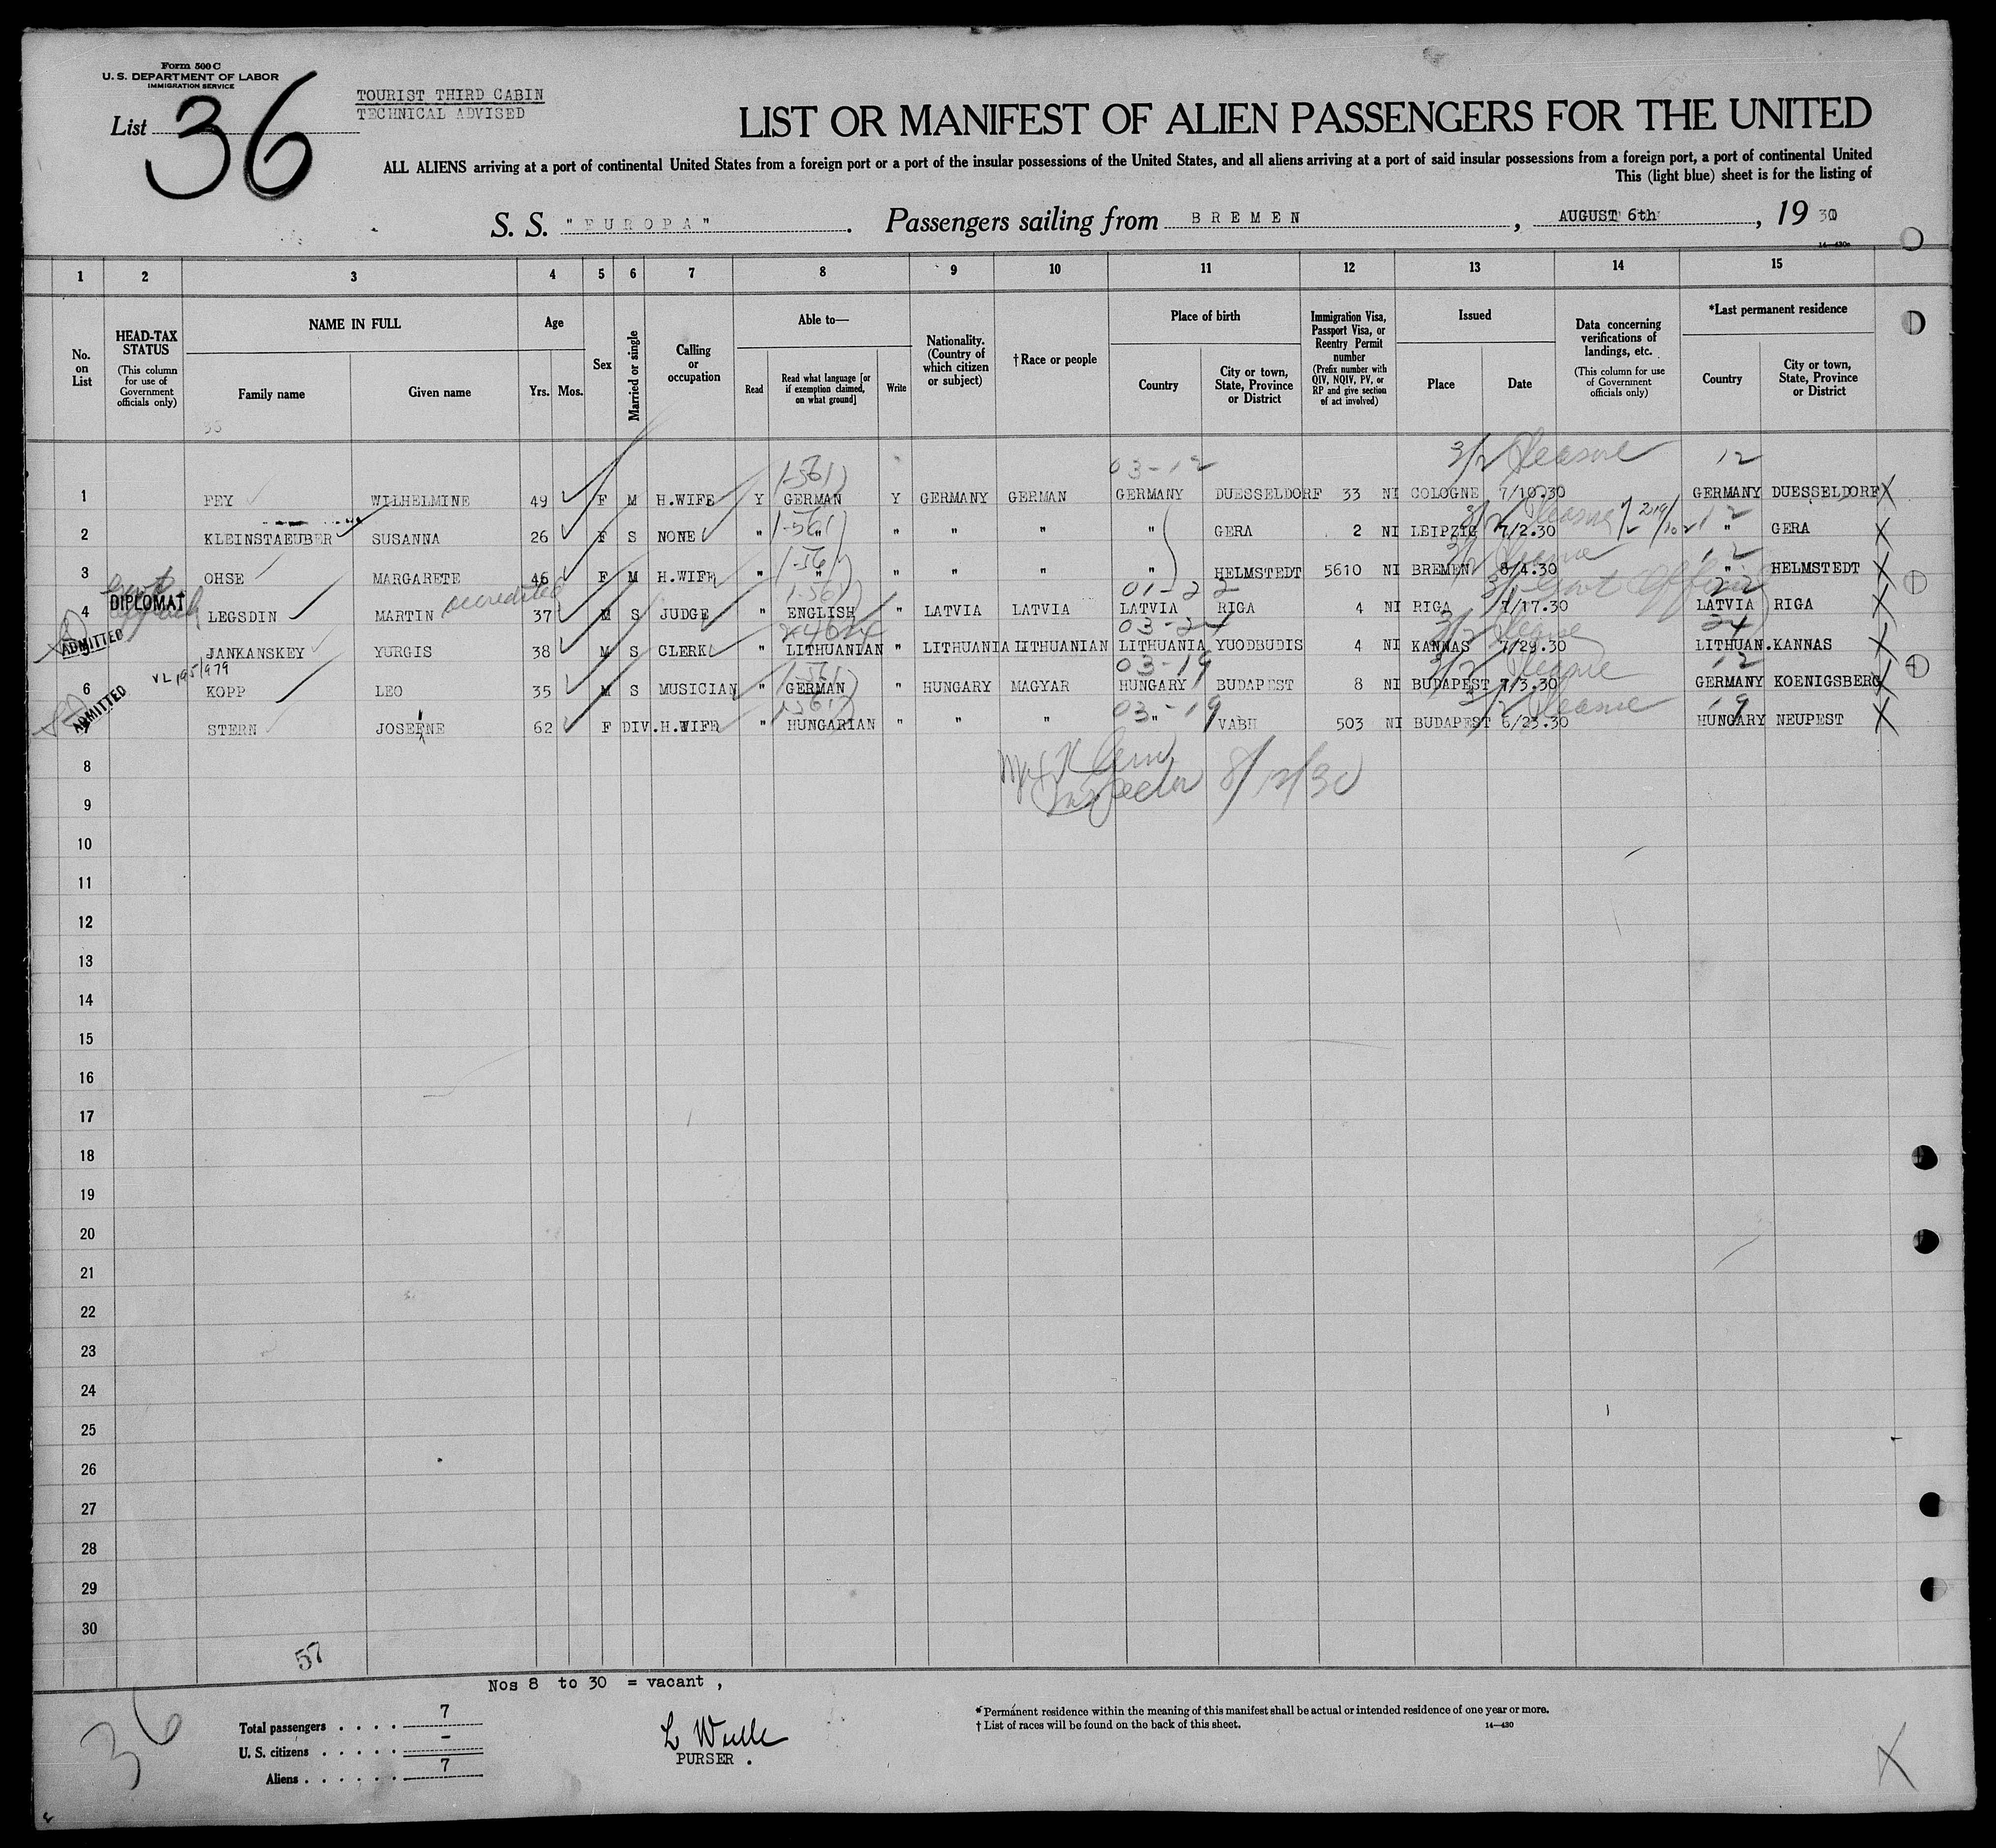 Form 500 C
U. S. DEPARTMENT OF LABOR
IMMIGRATION SERVICE
List 36
TOURIST THIRD CABIN
TECHNICAL ADVISED
LIST OR MANIFEST OF ALIEN PASSENGERS FOR THE UNITED
ALL ALIENS arriving at a port of continental United States from a foreign port or a port of the insular possessions of the United States, and all aliens arriving at a port of said insular possessions from a foreign port, a port of continental United
This (light blue) sheet is for the listing of
S. S. "EUROPA". Passengers sailing from BREMEN, AUGUST 6th, 1930
14—430
1 2 3 4 5 6 7 8 9 10 11 12 13 14 15
No. on List
HEAD-TAX STATUS (This column for use of Government officials only)
NAME IN FULL
Family name Given name
Age
Yrs. Mos.
Sex
Married or single
Calling or occupation
Able to—
Read
Read what language [or if exemption claimed, on what ground]
Write
Nationality. (Country of which citizen or subject)
†Race or people
Place of birth
Country
City or town, State, Province or District
Immigration Visa, Passport Visa, or Reentry Permit number (Prefix number with QIV, NQIV, PV, or RP and give section of act involved)
Issued
Place Date
Data concerning verifications of landings, etc. (This column for use of Government officials only)
*Last permanent residence
Country
City or town, State, Province or District
03-12 3/2 Pleasure 12
1 FEY WILHELMINE 49 F M H.WIFE Y GERMAN Y GERMANY GERMAN GERMANY DUESSELDORF 33 NI COLOGNE 7/10.30 GERMANY DUESSELDORF X
2 KLEINSTAEUBER SUSANNA 26 F S NONE " " " " " " GERA 2 NI LEIPZIG 7/2.30 " GERA X
3 OHSE MARGARETE 46 F M H.WIFE " " " " " " HELMSTEDT 5610 NI BREMEN 8/4.30 " HELMSTEDT X
DIPLOMAT accredited 01-22 22
4 LEGSDIN MARTIN 37 M S JUDGE " ENGLISH " LATVIA LATVIA LATVIA RIGA 4 NI RIGA 7/17.30 LATVIA RIGA X
ADMITTED 03-24 24
5 JANKANSKEY YURGIS 38 M S CLERK " LITHUANIAN " LITHUANIA LITHUANIAN LITHUANIA YUODBUDIS 4 NI KANNAS 7/29.30 LITHUAN. KANNAS X
03-19 3/2 Pleasure 12
6 KOPP LEO 35 M S MUSICIAN " GERMAN " HUNGARY MAGYAR HUNGARY BUDAPEST 8 NI BUDAPEST 7/3.30 GERMANY KOENIGSBERG X
ADMITTED 03-19 3/2 Pleasure 19
7 STERN JOSEFINE 62 F DIV. H.WIFE " HUNGARIAN " " " " VABH 503 NI BUDAPEST 6/23.30 HUNGARY NEUPEST X
8
Inspector 8/12/30
9
10
11
12
13
14
15
16
17
18
19
20
21
22
23
24
25
26
27
28
29
30
57
Nos 8 to 30 = vacant ,
36
Total passengers . . . . 7
U. S. citizens . . . . . –
Aliens . . . . . . 7
L Wulle
PURSER .
*Permanent residence within the meaning of this manifest shall be actual or intended residence of one year or more.
† List of races will be found on the back of this sheet.
14—430
X